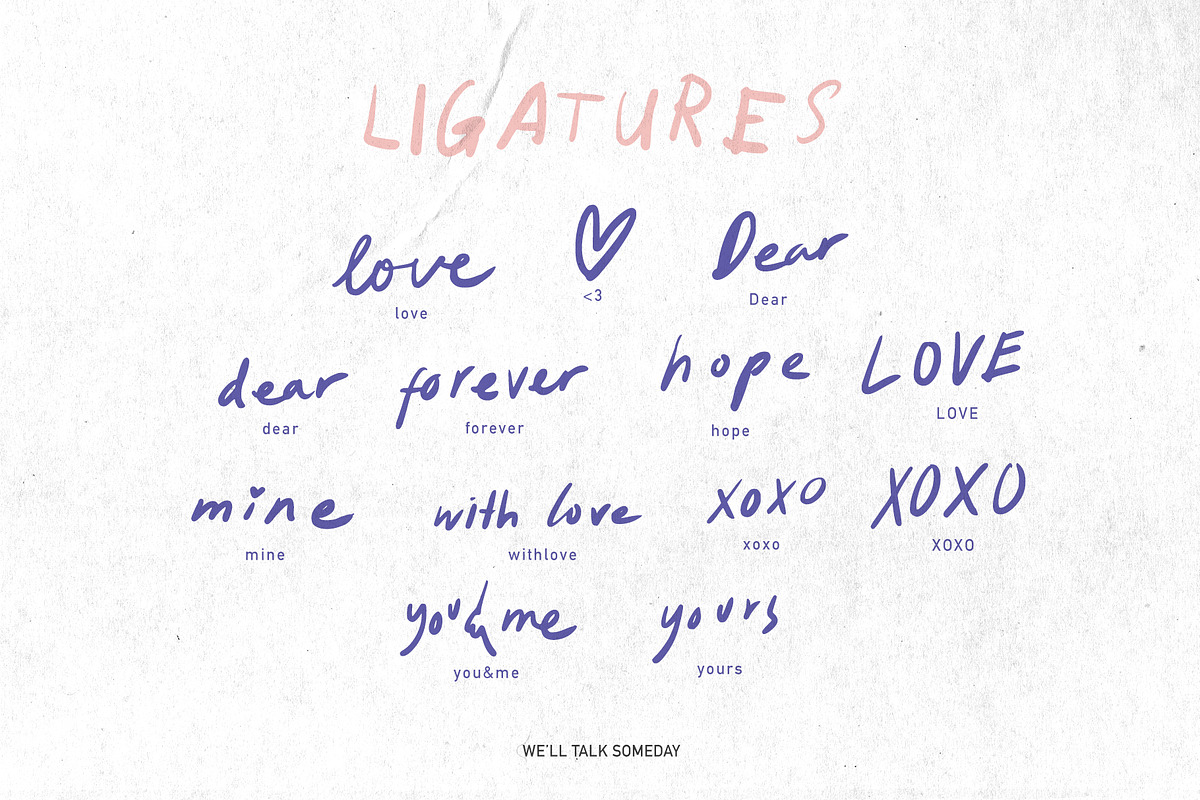 LIGATURES
love ♡ Dear
love <3 Dear
dear forever hope LOVE
dear forever hope LOVE
mine with love xoxo XOXO
mine withlove xoxo XOXO
you&me yours
you&me yours
WE'LL TALK SOMEDAY